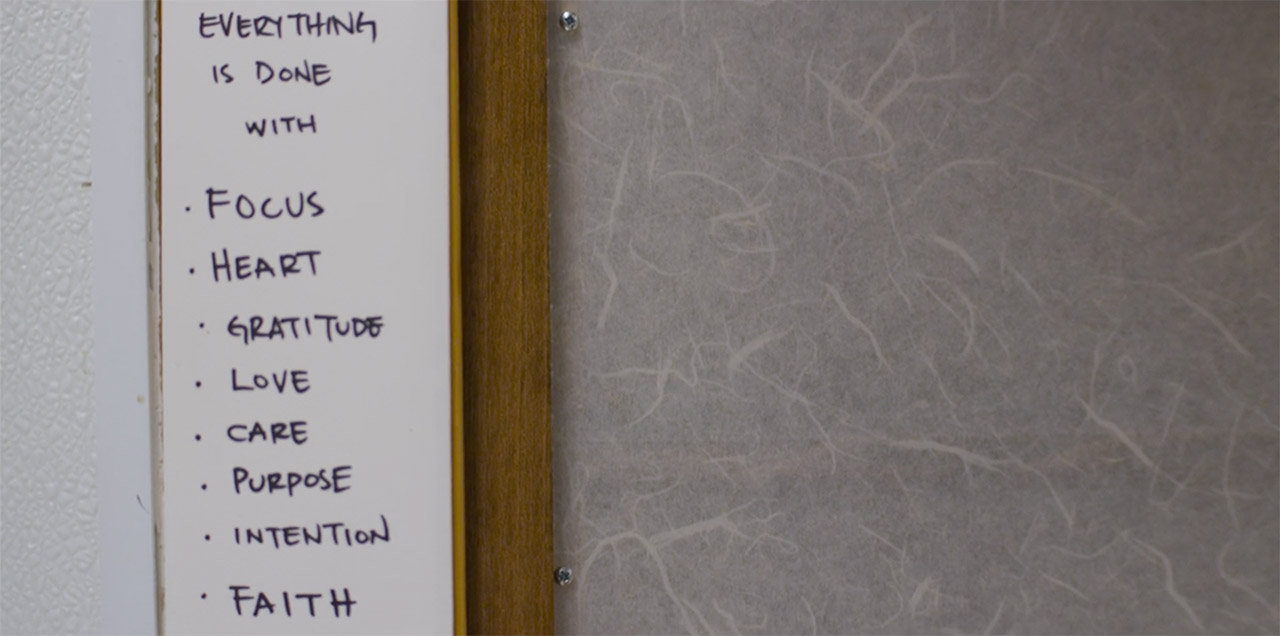 EVERYTHING
IS DONE
WITH
· FOCUS
· HEART
· GRATITUDE
· LOVE
· CARE
· PURPOSE
· INTENTION
· FAITH